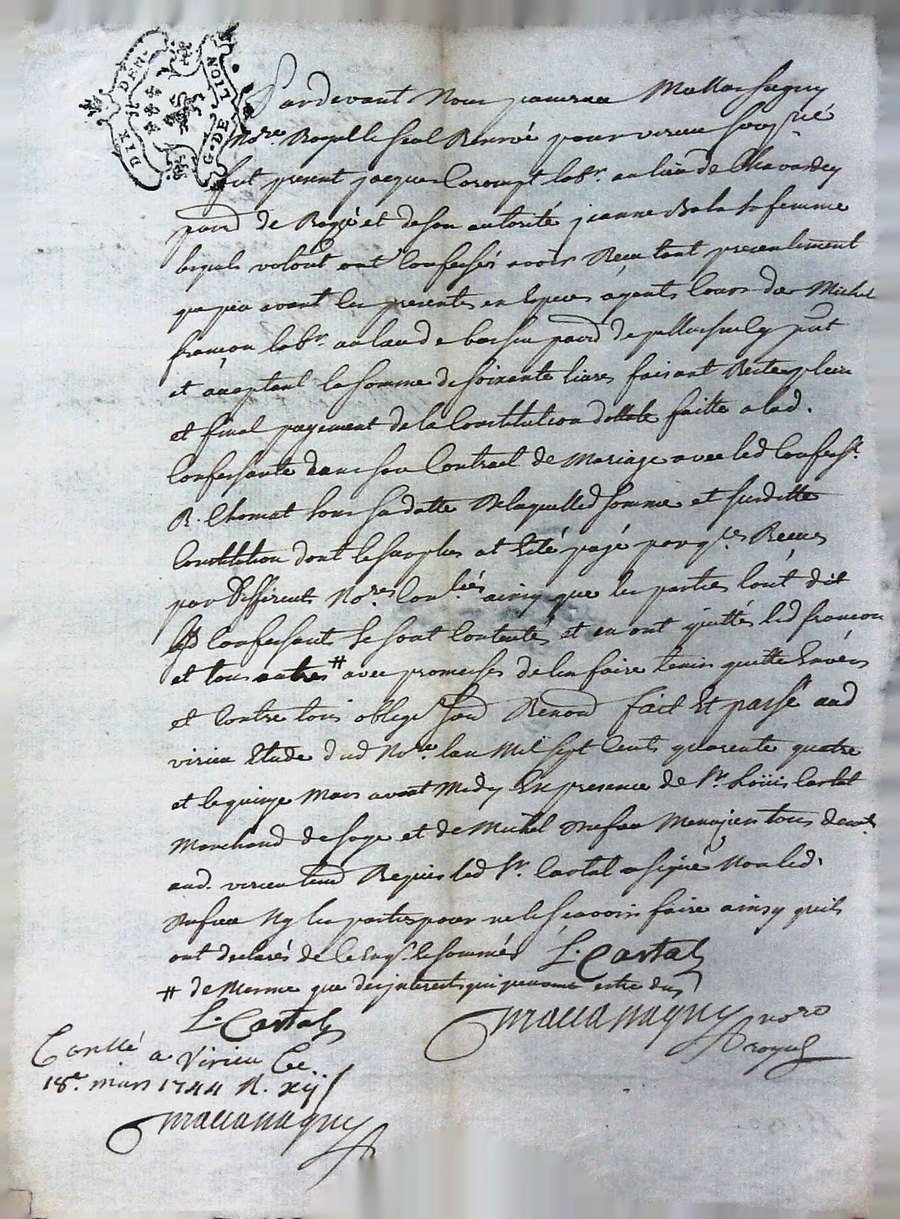 DIX DEN.
G. DE LION
Pardevant Nous
No.re Royal le seul Reservé pour virieu soussigné
fut present jacques Corompt lab.r au lieu de Chavardey
par.d de et de son autorité jeanne sa femme
lesquels volont. ont Confessés avoir Receu tant presentement
que par avant les presentes en especes d'argents Cours de Michel
françon lab.r au lieu de par.d de pellussieu p.nt
et acceptant la somme de soixante livres faisant Reste plein
et final payement de la Constitution dottale faitte a lad.
Confessante dans son Contract de Mariage avec led. Confess.t
R. Chomat sous sa datte de laquelle d. somme et surditte
Constitution dont le surplus at Eté payé par q.ces Receues
par differents No.res ainsy que les parties l'ont dit
lesd. Confessant se sont Contentés et en ont quittés led françon
et tous autres # avec promesses de l'en faire tenir quitte Envers
et Contre tous oblige.t soum. Renon.d fait Et passé aud
virieu Etude dud No.re l'an Mil sept Cents quarente quatre
et le quinze Mars avant Midy En presence de S.r Loüis Cartal
Marchand de soye et de Michel tous de
aud. virieu Requis led S.r Cartal a signé Non led.
Ny les parties pour ne le scavoir faire ainsy quils
ont declarés de ce Enq.s et sommés L. Cartal
# de Mesme que des interests qui peuvent estre dus
L. Cartal nore
royal
Conllé
a Virieu Ce
18e. mars 1744 R. xij s